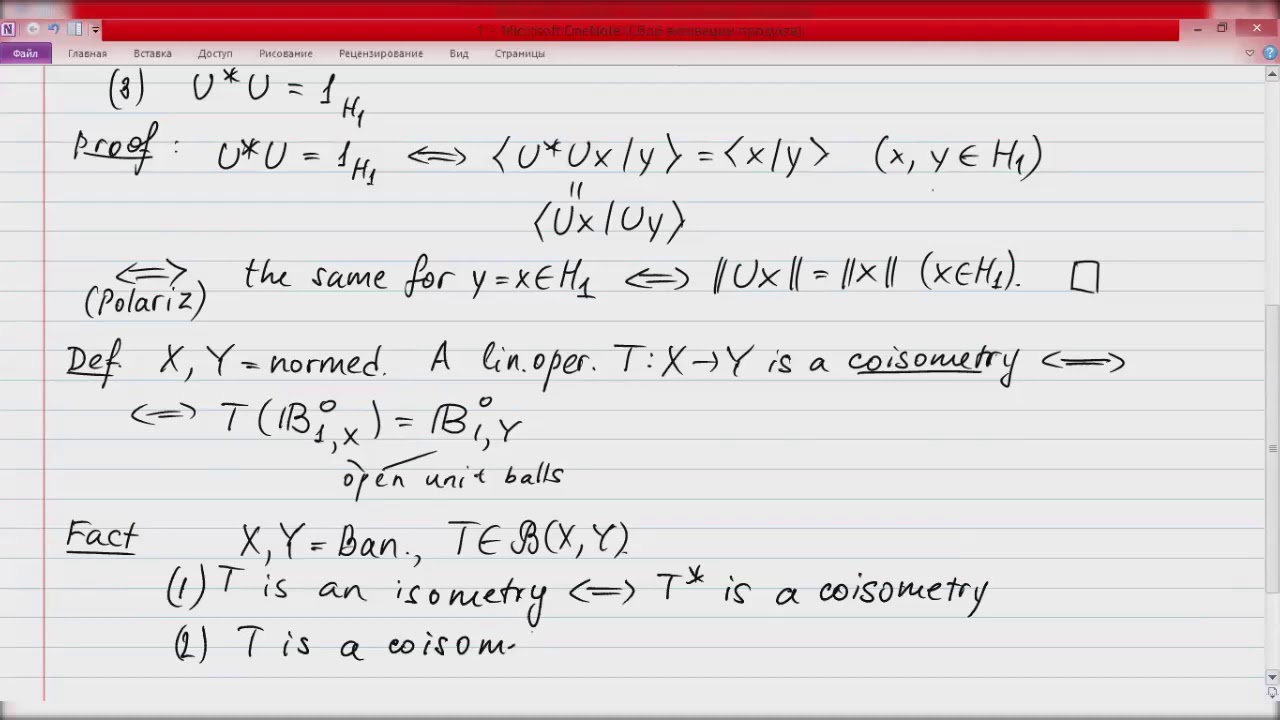 Файл Главная Вставка Доступ Рисование Рецензирование Вид Страницы
(3) U*U = 1_{H_1}
Proof: U*U = 1_{H_1} <=> ⟨U*Ux|y⟩ = ⟨x|y⟩ (x, y ∈ H_1)
||
⟨Ux|Uy⟩
<=> the same for y = x ∈ H_1 <=> ||Ux|| = ||x|| (x ∈ H_1). □
(Polariz)
Def. X, Y = normed. A lin. oper. T: X → Y is a coisometry <=>
<=> T(𝔹°_{1,X}) = 𝔹°_{1,Y}
open unit balls
Fact X, Y = Ban., T ∈ ℬ(X, Y).
(1) T is an isometry <=> T* is a coisometry
(2) T is a coisom.